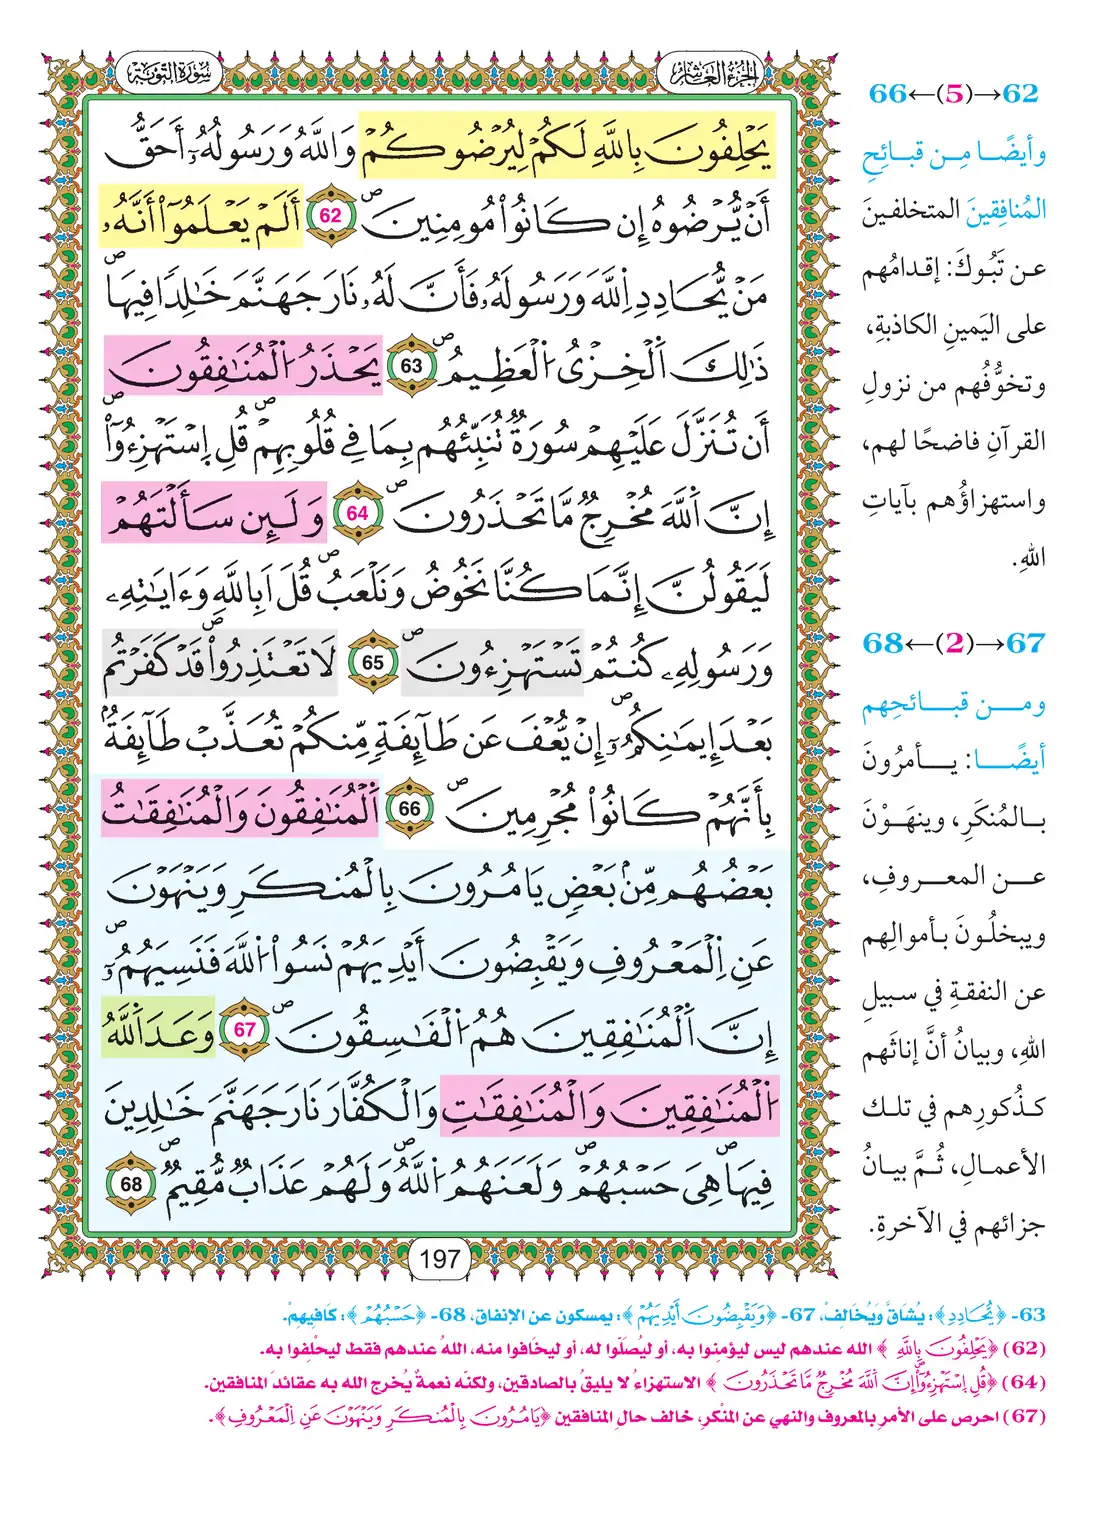 الجزء العاشر
سورة التوبة
يَحْلِفُونَ بِاللَّهِ لَكُمْ لِيُرْضُوكُمْ وَاللَّهُ وَرَسُولُهُۥٓ أَحَقُّ
أَنْ يُّرْضُوهُ إِن كَانُواْ مُومِنِينَۖ 62 أَلَمْ يَعْلَمُوٓاْ أَنَّهُۥ
مَنْ يُّحَادِدِ اِللَّهَ وَرَسُولَهُۥ فَأَنَّ لَهُۥ نَارَ جَهَنَّمَ خَٰلِدٗا فِيهَاۖ
ذَٰلِكَ اَلْخِزْيُ اُلْعَظِيمُۖ 63 يَحْذَرُ اُلْمُنَٰفِقُونَ
أَن تُنَزَّلَ عَلَيْهِمْ سُورَةٞ تُنَبِّئُهُم بِمَا فِي قُلُوبِهِمْۖ قُلِ اِسْتَهْزِءُوٓاْۖ
إِنَّ اَللَّهَ مُخْرِجٞ مَّا تَحْذَرُونَۖ 64 وَلَئِن سَأَلْتَهُمْ
لَيَقُولُنَّ إِنَّمَا كُنَّا نَخُوضُ وَنَلْعَبُۖ قُلَ اَبِاللَّهِ وَءَايَٰتِهِۦ
وَرَسُولِهِۦ كُنتُمْ تَسْتَهْزِءُونَۖ 65 لَا تَعْتَذِرُواْۖ قَدْ كَفَرْتُم
بَعْدَ إِيمَٰنِكُمُۥٓۖ إِنْ يُّعْفَ عَن طَآئِفَةٖ مِّنكُمْ تُعَذَّبْ طَآئِفَةُۢ
بِأَنَّهُمْ كَانُواْ مُجْرِمِينَۖ 66 اَلْمُنَٰفِقُونَ وَالْمُنَٰفِقَٰتُ
بَعْضُهُم مِّنۢ بَعْضٖ يَامُرُونَ بِالْمُنكَرِ وَيَنْهَوْنَ
عَنِ اِلْمَعْرُوفِ وَيَقْبِضُونَ أَيْدِيَهُمْ نَسُواْ اُللَّهَ فَنَسِيَهُمُۥٓۖ
إِنَّ اَلْمُنَٰفِقِينَ هُمُ اُلْفَٰسِقُونَۖ 67 وَعَدَ اَللَّهُ
اُلْمُنَٰفِقِينَ وَالْمُنَٰفِقَٰتِ وَالْكُفَّارَ نَارَ جَهَنَّمَ خَٰلِدِينَ
فِيهَاۖ هِيَ حَسْبُهُمْۖ وَلَعَنَهُمُ اُللَّهُۖ وَلَهُمْ عَذَابٞ مُّقِيمٞۖ 68
197
62→(5)←66
وأيضًا مِن قبائِحِ
المُنافِقينَ المتخلفينَ
عن تَبُوكَ: إقدامُهم
على اليَمينِ الكاذبةِ،
وتخوُّفُهم من نزولِ
القرآنِ فاضحًا لهم،
واستهزاؤُهم بآياتِ
اللهِ.
67→(2)←68
ومن قبائحِهم
أيضًا: يأمرُونَ
بالمُنكَرِ، وينهَوْنَ
عن المعروفِ،
ويبخلُونَ بأموالِهم
عن النفقةِ في سبيلِ
اللهِ، وبيانُ أنَّ إناثَهم
كذُكورِهم في تلك
الأعمالِ، ثُمَّ بيانُ
جزائهم في الآخرةِ.
63- ﴿يُّحَادِدِ﴾: يُشَاقَّ وَيُخَالِفْ، 67- ﴿وَيَقْبِضُونَ أَيْدِيَهُمْ﴾: يمسكون عن الإنفاق، 68- ﴿حَسْبُهُمْ﴾: كَافِيهِمْ.
(62) ﴿يَحْلِفُونَ بِاللَّهِ﴾ الله عندهم ليس ليؤمنوا به، أو ليُصَلّوا له، أو ليخافوا منه، اللهُ عندهم فقط ليحْلِفوا به.
(64) ﴿قُلِ اِسْتَهْزِءُوٓاْۖ إِنَّ اَللَّهَ مُخْرِجٞ مَّا تَحْذَرُونَ﴾ الاستهزاءُ لا يليقُ بالصادقين، ولكنّه نعمةٌ يُخرج الله به عقائدَ المنافقين.
(67) احرص على الأمرِ بالمعروف والنهي عن المنْكرِ، خالف حال المنافقين ﴿يَامُرُونَ بِالْمُنكَرِ وَيَنْهَوْنَ عَنِ اِلْمَعْرُوفِ﴾.